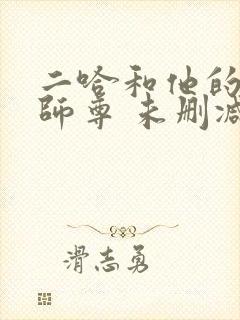 二哈和他的
師尊 未删減
滑志勇